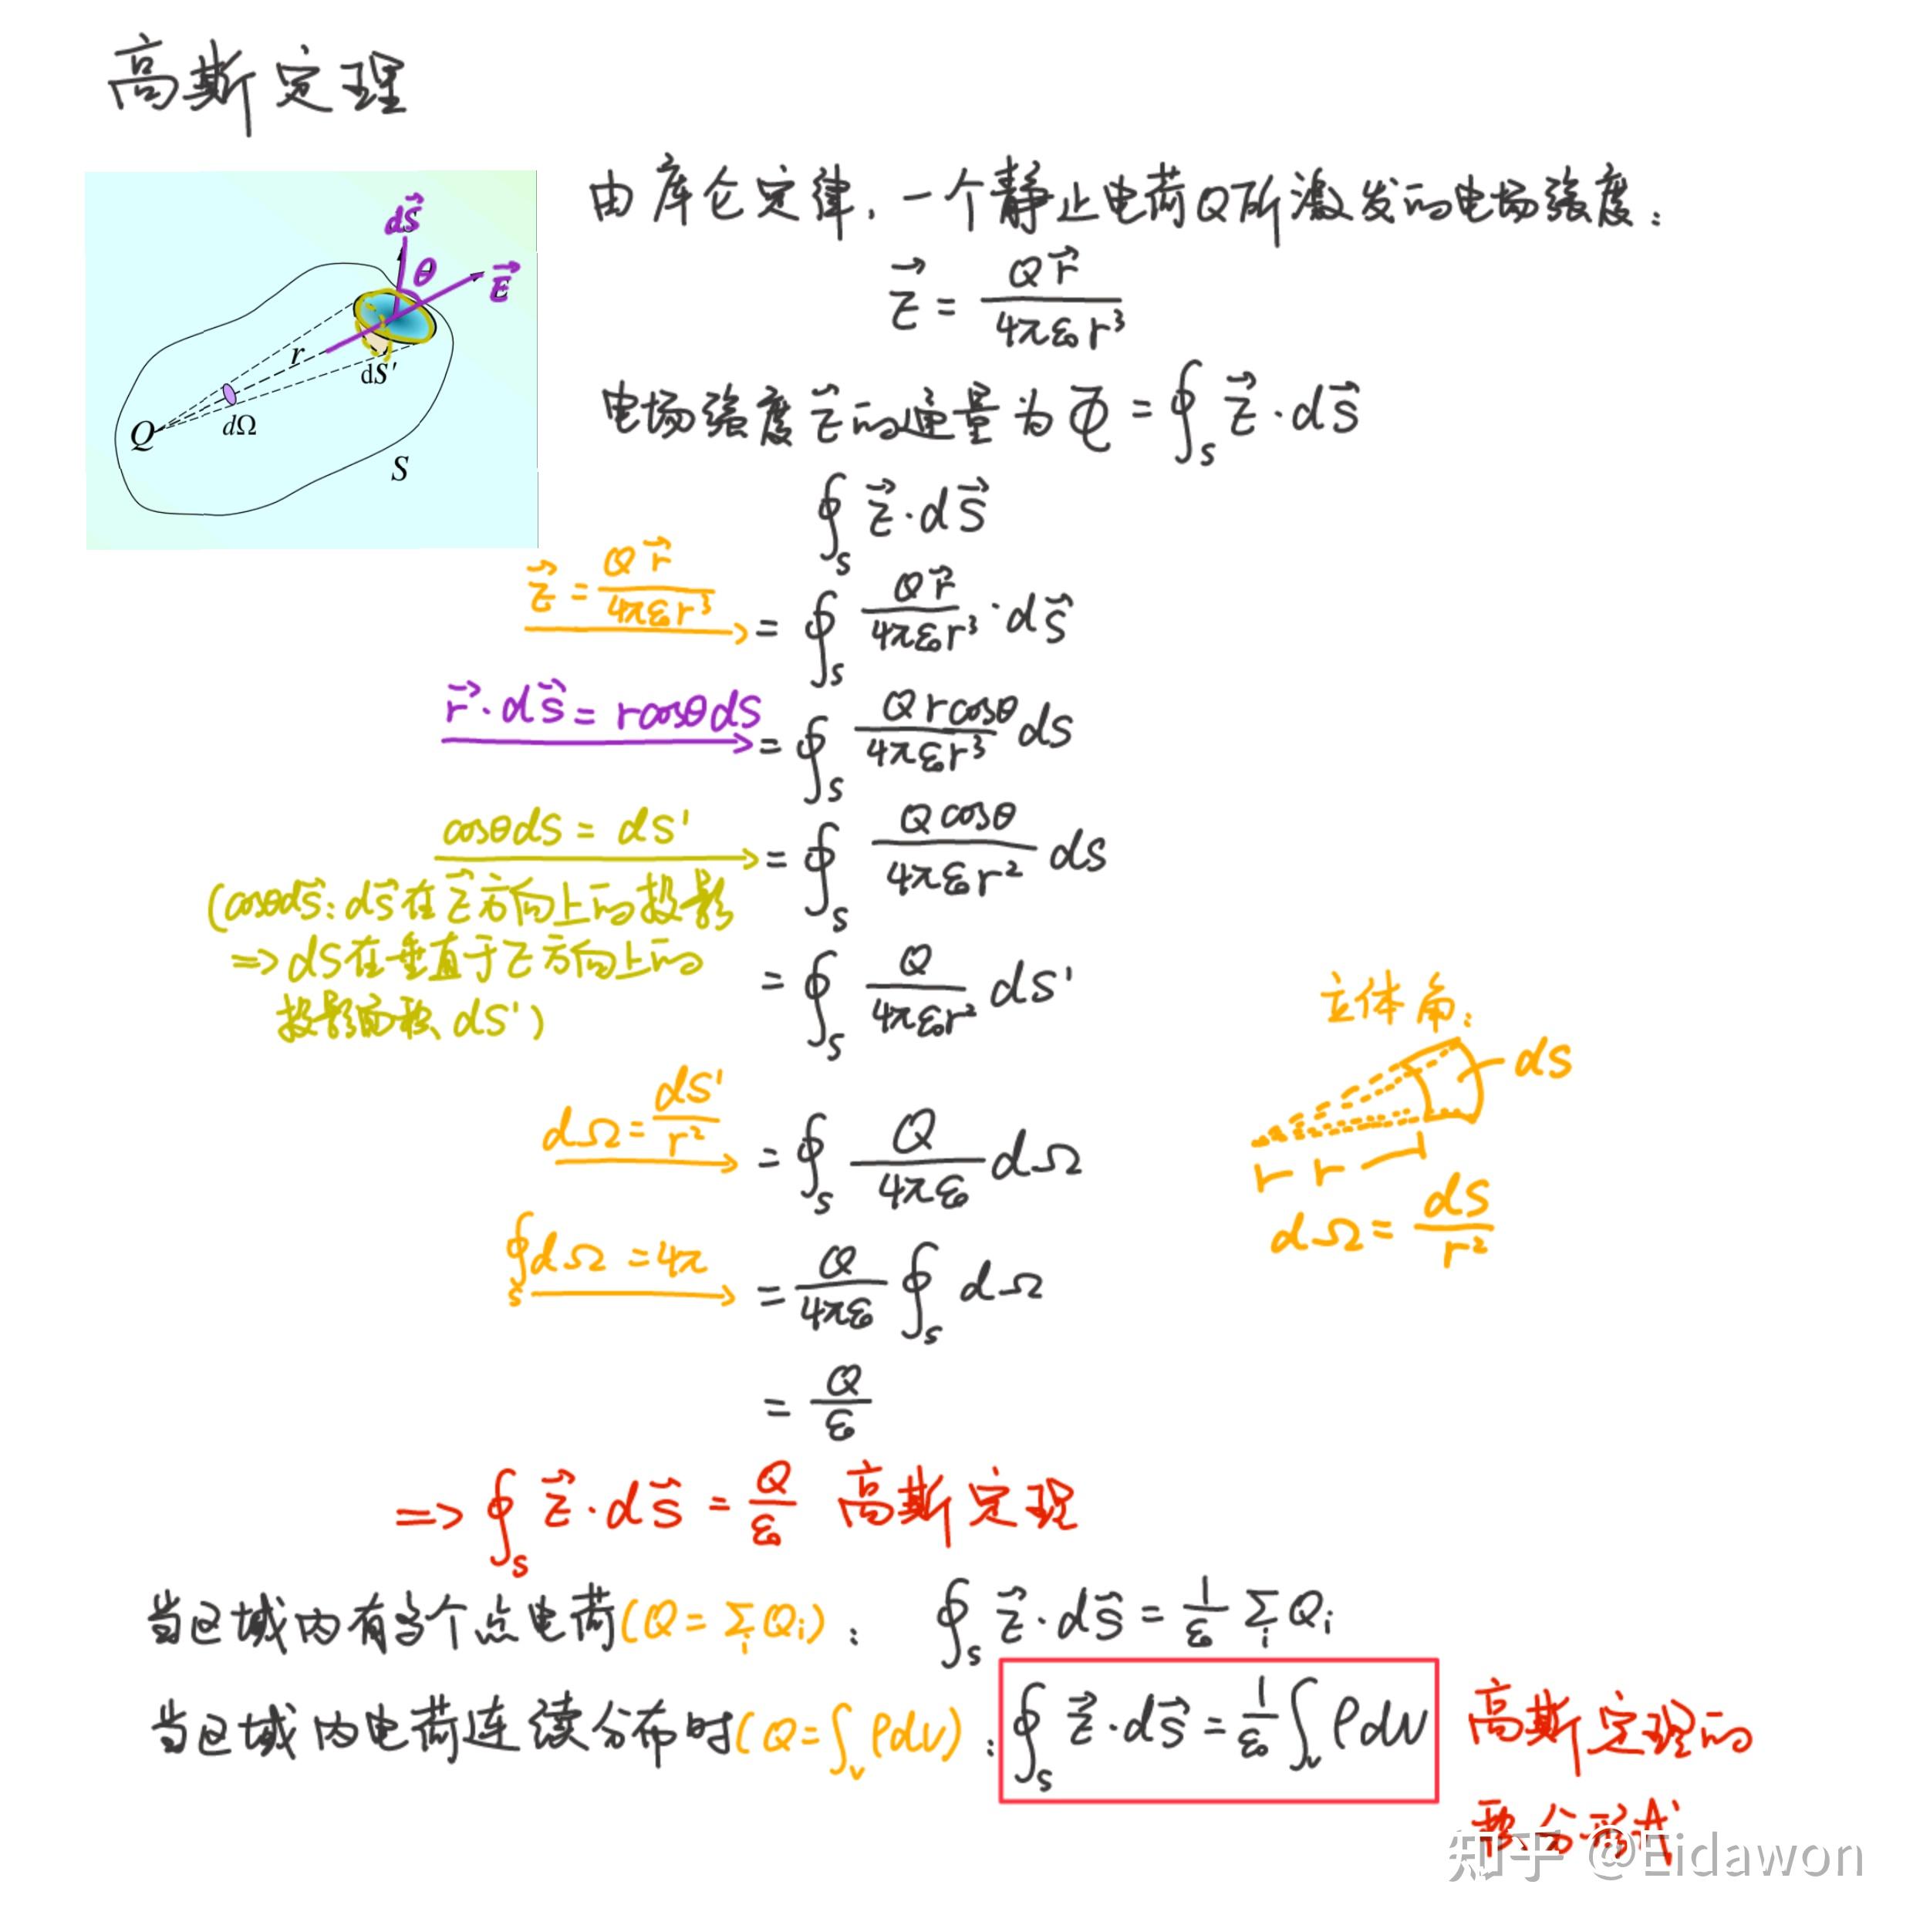 高斯定理
由库仑定律,一个静止电荷Q所激发的电场强度:
dS⃗
θ
E⃗
r
dS'
Q
dΩ
S
E⃗ = Qr⃗/4πε₀r³
电场强度E⃗的通量为Φ = ∮_S E⃗·dS⃗
∮_S E⃗·dS⃗
E⃗ = Qr⃗/4πε₀r³ = ∮_S Qr⃗/4πε₀r³ · dS⃗
r⃗·dS⃗ = rcosθdS = ∮_S Qrcosθ/4πε₀r³ dS
cosθdS = dS' = ∮_S Qcosθ/4πε₀r² dS
(cosθdS⃗: dS⃗在E⃗方向上的投影
=> dS在垂直于E方向上的
投影面积dS')
= ∮_S Q/4πε₀r² dS'
立体角:
dS
r
dΩ = dS/r²
dΩ = dS'/r² = ∮_S Q/4πε₀ dΩ
∮_S dΩ = 4π = Q/4πε₀ ∮_S dΩ
= Q/ε₀
=> ∮_S E⃗·dS⃗ = Q/ε₀ 高斯定理
当区域内有多个点电荷(Q = Σ_i Q_i): ∮_S E⃗·dS⃗ = 1/ε₀ Σ_i Q_i
当区域内电荷连续分布时(Q = ∫_V ρdV): ∮_S E⃗·dS⃗ = 1/ε₀ ∫_V ρdV 高斯定理的
积分形式
知乎 @Eidawon